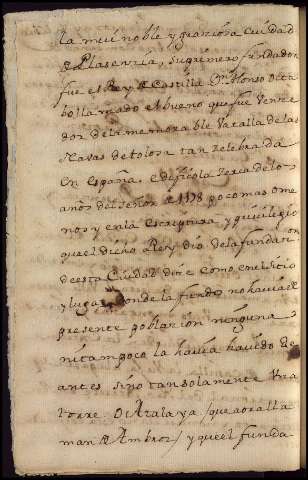 la mui noble y graciosa Ciudad
de Plasencia, su primero fundador
fue el Rey de Castilla Dn Alonso Octa
bo llamado el bueno que fue Vence
dor de la memorable Vatalla de las
Navas de tolosa tan Zelebrada
En España edificola Zerca de los
años del señor de 1178 poco mas ome
nos y en la Escriptura y previlegio
que el dicho Rey dio de la fundacion
de esta Ciudad dice Como en el sitio
y lugar donde la fundo no havia al
presente poblacion ninguna
ni tampoco la havia havido de
antes sino tan solamente Vna
torre O Atalaya que aora lla
man de Ambroz y que el funda